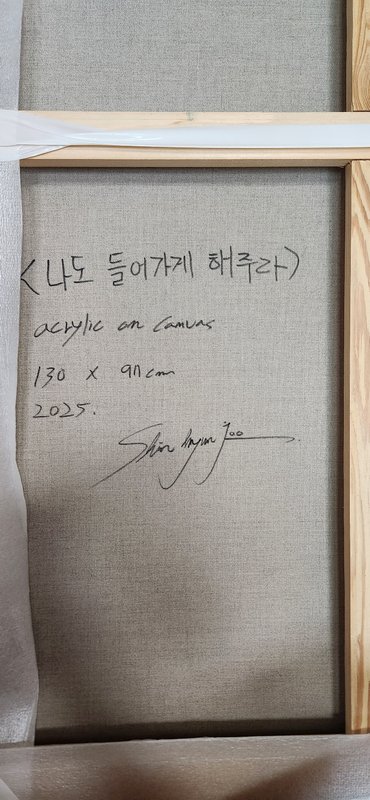 <나도 들어가게 해주라>
acrylic on canvas
130 x 97cm
2025.
Shin hyun Joo